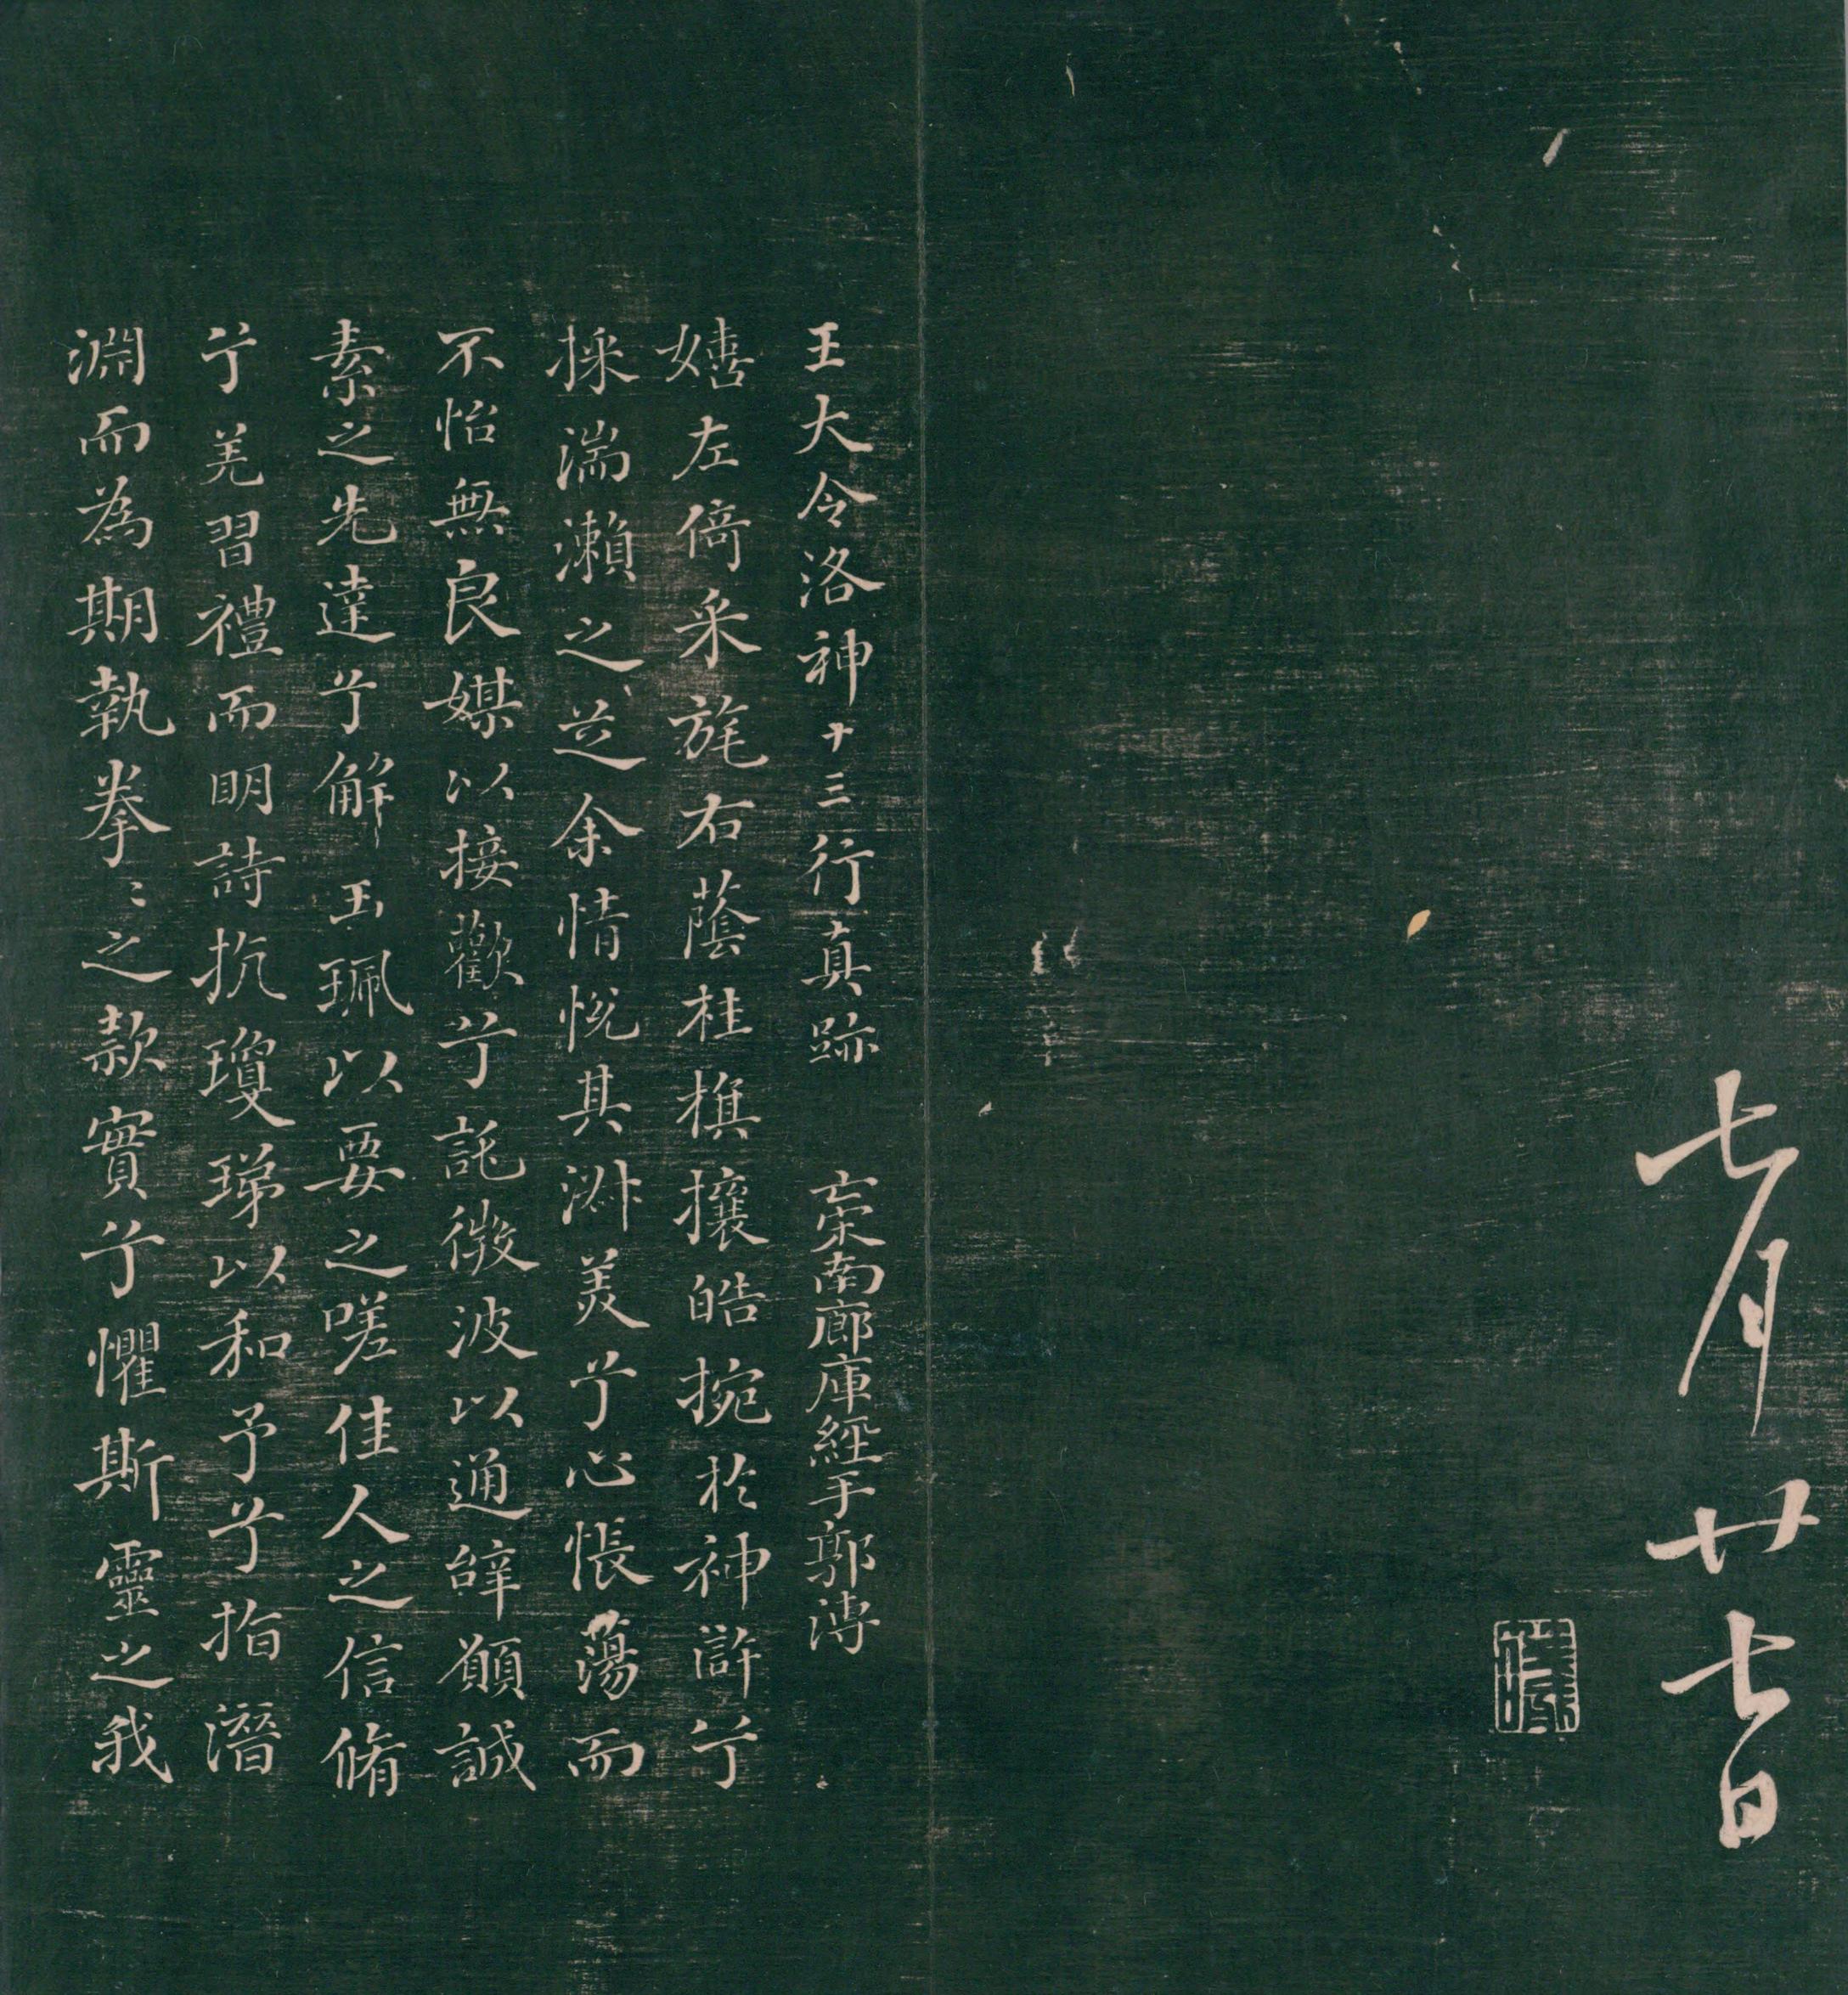 七月廿七日
王大令洛神十三行真跡 宋南廊庫經手郭漙
嬉左倚采旄右蔭桂旗攘皓捥於神滸兮
採湍瀨之芝余情悅其淑美兮心悵蕩而
不怡無良媒以接歡兮託微波以通辭願誠
素之先達兮解玉珮以要之嗟佳人之信脩
兮羌習禮而明詩抗瓊珶以和予兮指潛
淵而為期執拳〻之款實兮懼斯靈之我